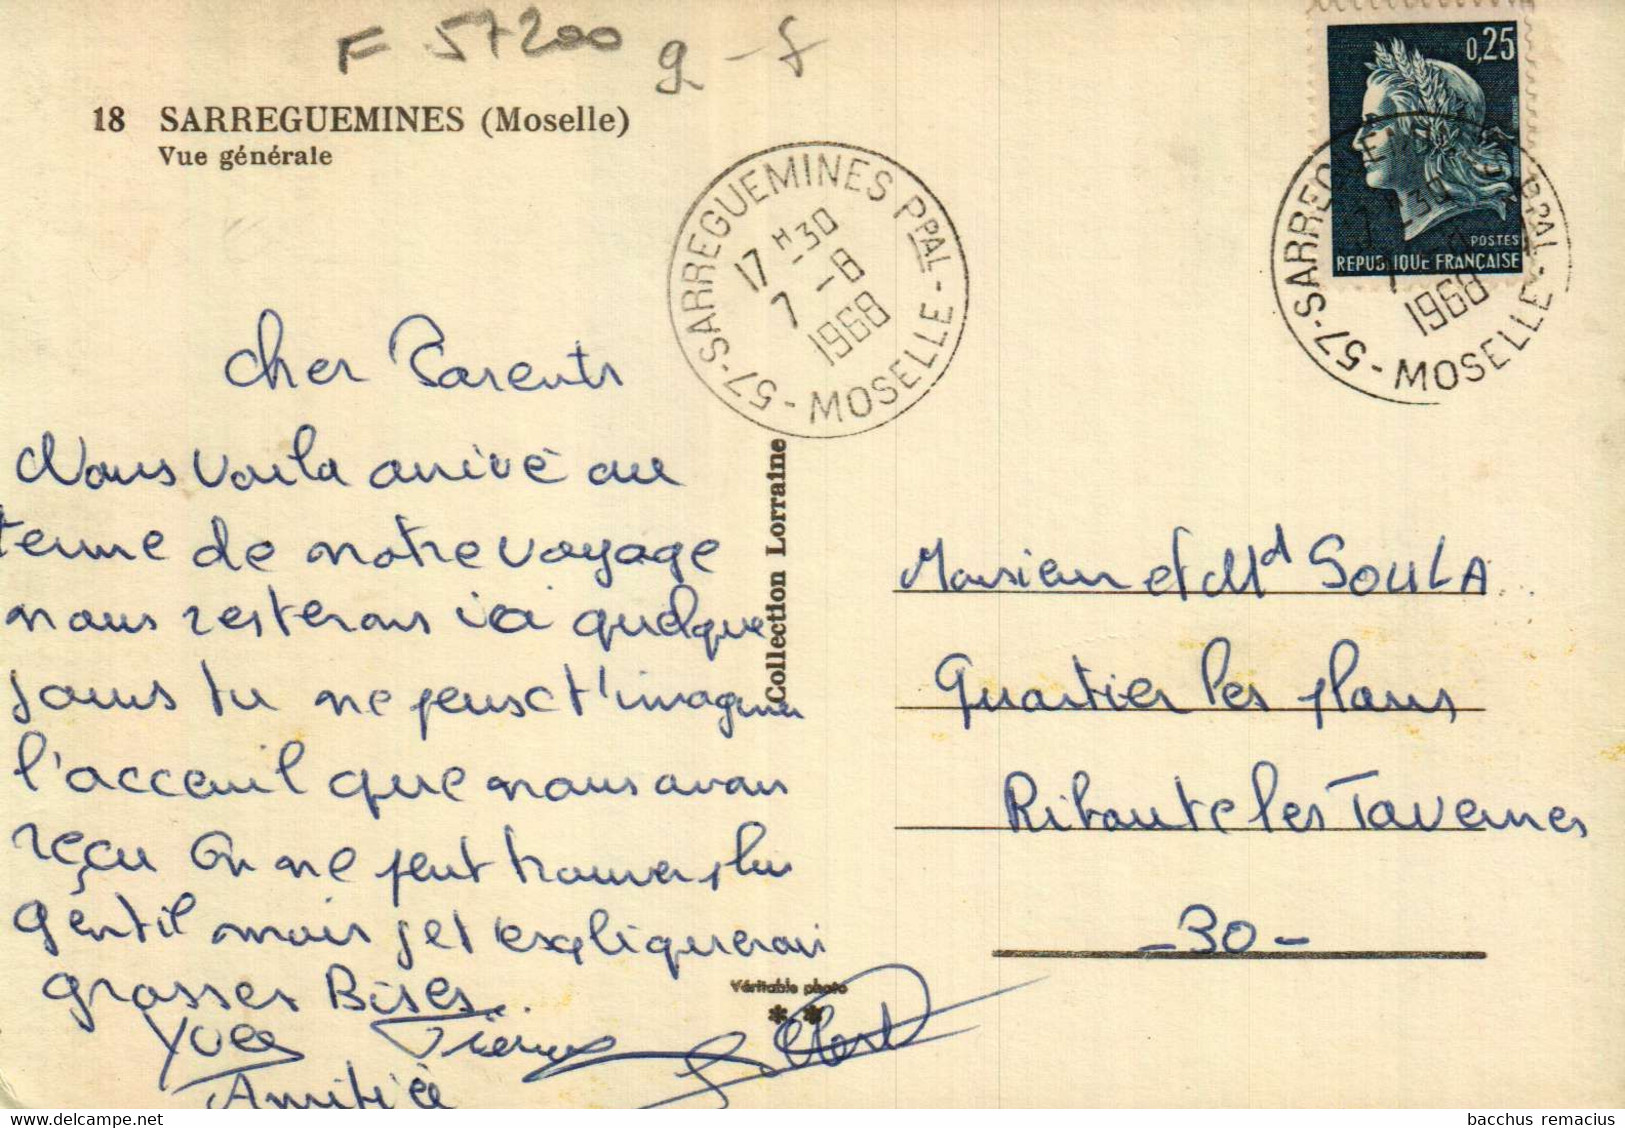 F 57200 g-f
18 SARREGUEMINES (Moselle)
Vue générale
0,25
POSTES
REPUBLIQUE FRANÇAISE
57-SARREGUEMINES PPAL - MOSELLE -
17 H -30
7 -8
1968
57-SARREGUEMINES PPAL - MOSELLE -
17 H -30
7 -8
1968
Cher Parents
Nous voila arrivé au
terme de notre voyage
nous resterons ici quelque
jours tu ne peus t'imaginer
l'acceuil que nous avons
reçu On ne peut trouver plus
gentil mais je t'expliquerai
grosses Bises.
Yves Pierre
Amitié
Collection Lorraine
Véritable photo
Monsieur et Md SOULA
Quartier les plans
Ribaute les Tavernes
-30-
bacchus remacius